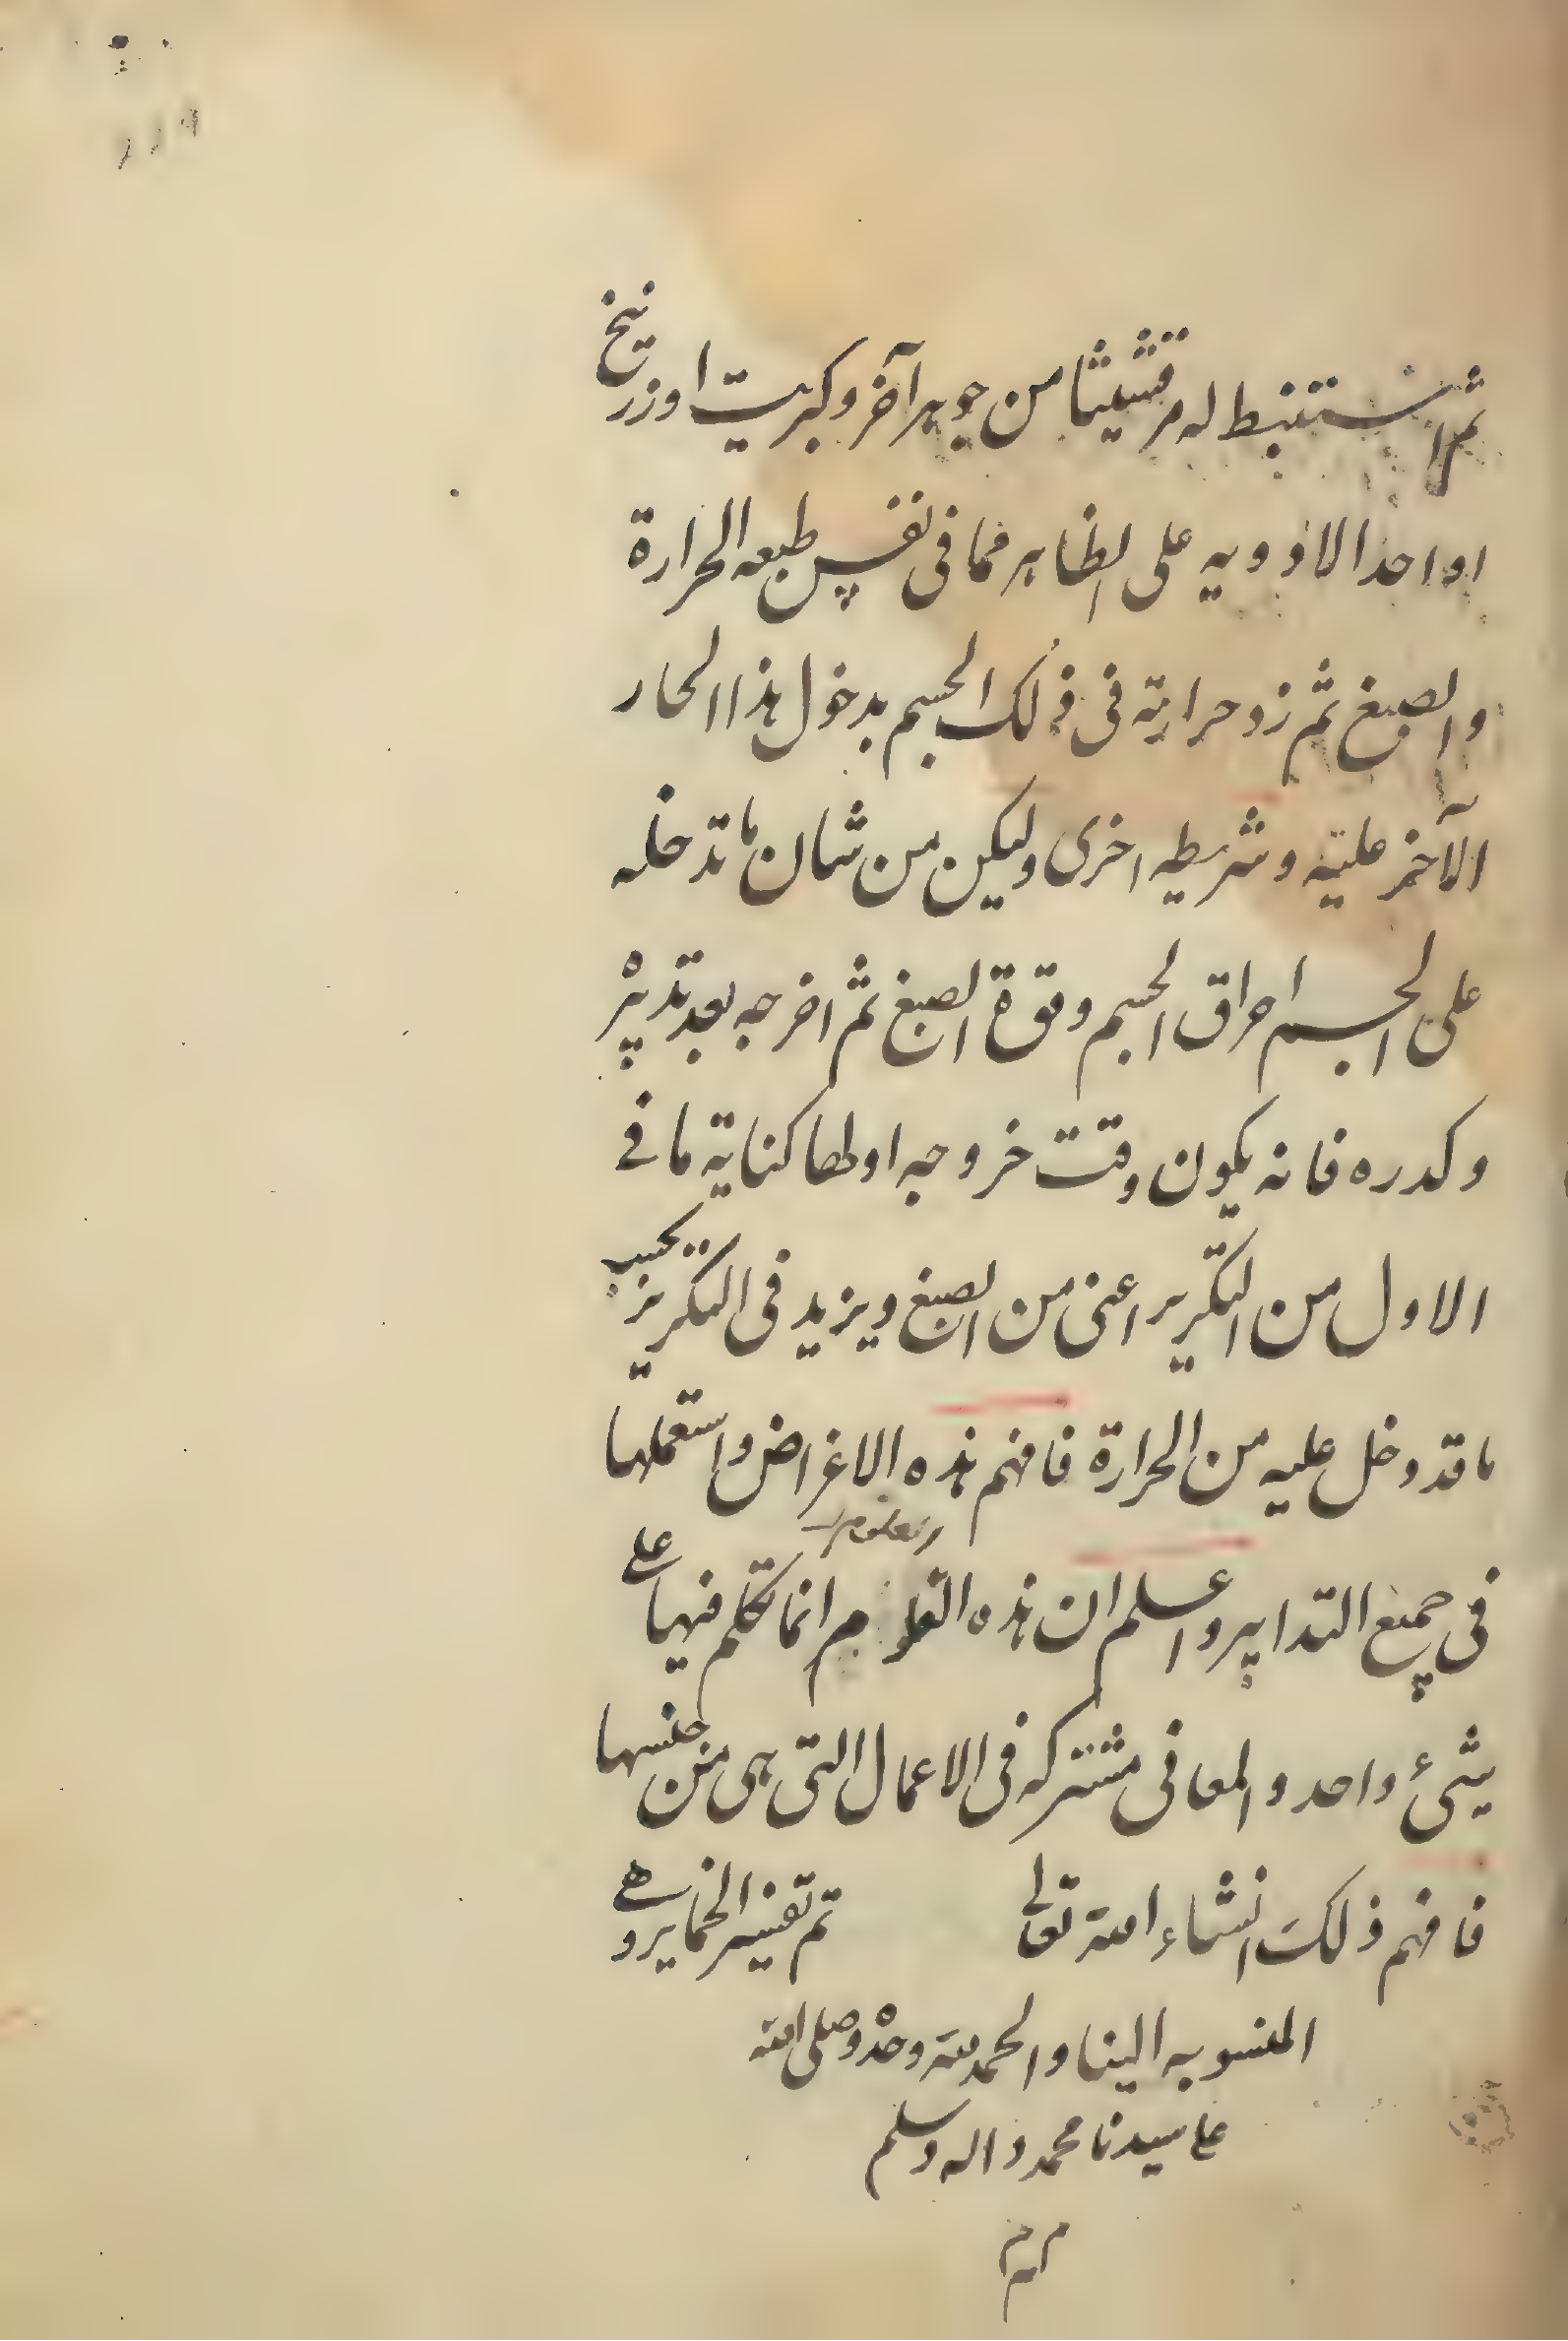 ثم استنبط له مرقشيثا من جوهر آخر وكبريت او زرنيخ
او احد الادويه على الظاهر مما فى نفس طبعه الحرارة
والصبغ ثم زد حرارته فى ذلك الجسم بدخول هذا الحار
الآخر عليه وشريطه اخرى وليكن من شان ما تدخله
على الجسم احراق الجسم وقوة الصبغ ثم اخرجه بعد تدبيره
وكدره فانه يكون وقت خروجه اوطا كناية ما فے
الاول من التكرير اعنى من الصبغ ويزيد فى التكرير بحسب
ما قد دخل عليه من الحرارة فافهم هذه الاغراض واستعملها
فى جميع التدابير واعلم ان هذه العلوم انما تكلم فيها على
شىء واحد والمعانى مشتركه فى الاعمال التى هى من جنسها
فافهم ذلك انشاء الله تعالى تم تفسير الخماير وهے
المنسوبه الينا والحمد لله وحده وصلى الله
على سيدنا محمد واله وسلم
م م
م